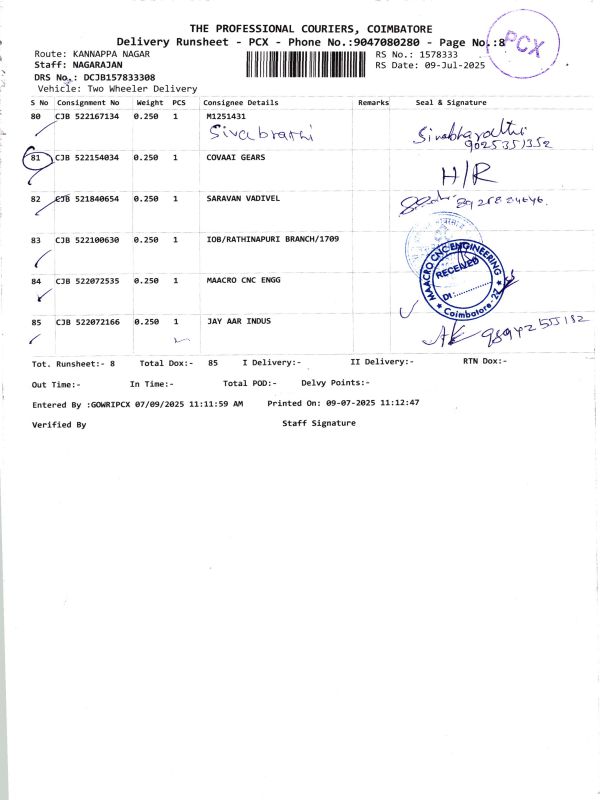 THE PROFESSIONAL COURIERS, COIMBATORE
Delivery Runsheet - PCX - Phone No.:9047080280 - Page No.:8
PCX
Route: KANNAPPA NAGAR
RS No.: 1578333
Staff: NAGARAJAN
RS Date: 09-Jul-2025
DRS No.: DCJB157833308
Vehicle: Two Wheeler Delivery
S No Consignment No Weight PCS Consignee Details Remarks Seal & Signature
80 CJB 522167134 0.250 1 M1251431
Sivabrathi Sivabharathi
9025351352
81 CJB 522154034 0.250 1 COVAAI GEARS
H/R
82 CJB 521840654 0.250 1 SARAVAN VADIVEL
83 CJB 522100630 0.250 1 IOB/RATHINAPURI BRANCH/1709
84 CJB 522072535 0.250 1 MAACRO CNC ENGG
MAACRO CNC ENGINEERING
RECEIVED
Dt:..............
★ Coimbatore - 27 ★
85 CJB 522072166 0.250 1 JAY AAR INDUS
Tot. Runsheet:- 8 Total Dox:- 85 I Delivery:- II Delivery:- RTN Dox:-
Out Time:- In Time:- Total POD:- Delvy Points:-
Entered By :GOWRIPCX 07/09/2025 11:11:59 AM Printed On: 09-07-2025 11:12:47
Verified By Staff Signature